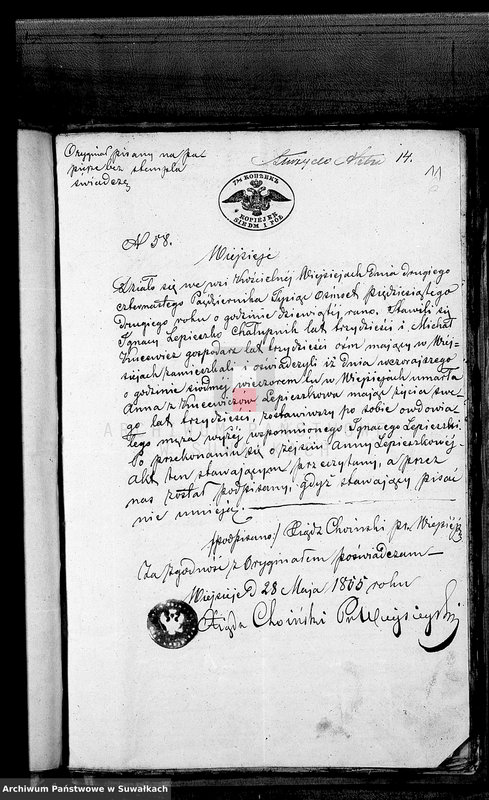 Oryginał pisany na pa-
pierze bez stempla
świadczę
Służy do Aktu 14.
11
7½ КОПѢЕКЪ
KOPIEJEK
SIEDM I PÓŁ
N 58.
Wiejsieje
Działo się we wsi Kościelnej Wiejsiejach Dnia drugiego
czternastego Października Tysiąc Ośmset pięćdziesiątego
drugiego roku o godzinie dziewiątej rano. Stawili się
Ignacy Łepieszko Chałupnik lat trzydzieści i Michał
Kucewicz gospodarz lat trzydzieści ośm mający w Wiej-
siejach zamieszkali i oświadczyli iż Dnia wczorajszego
o godzinie siódmej wieczorem tu w Wiejsiejach umarła
Anna z Kucewiczów Łepieszkowa mając życia swe-
go lat trzydzieści, zostawiwszy po sobie owdowia-
łego męża wyżej wspomnionego Ignacego Łepieszki.
Po przekonaniu się o zejściu Anny Łepieszkowej
Akt ten stawającym przeczytany, a przez
nas został podpisany, gdyż stawający pisać
nie umieją.
/podpisano/ Ksiądz Choiński pr. Wiejsiejski
Za zgodność z Oryginałem poświadczam
Wiejsieje D 28 Maja 1855 roku
Ksiądz Choiński Pr Wiejsiejski
Archiwum Państwowe w Suwałkach